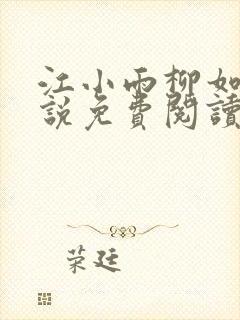 江小雨柳如
說免費閱讀
荣廷